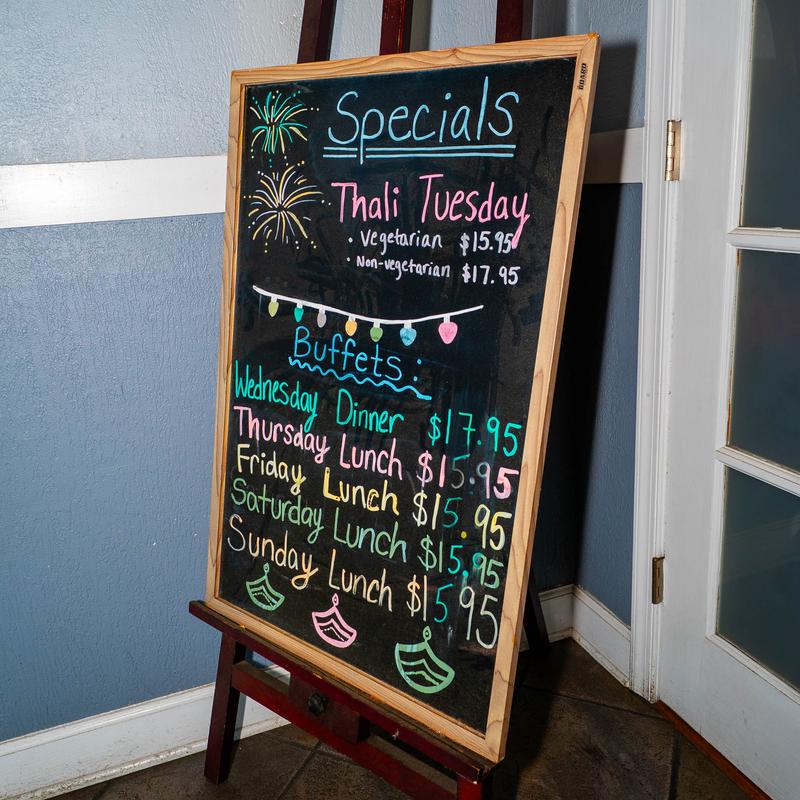 Specials
Thali Tuesday
• Vegetarian $15.95
• Non-vegetarian $17.95
Buffets:
Wednesday Dinner $17.95
Thursday Lunch $15.95
Friday Lunch $15.95
Saturday Lunch $15.95
Sunday Lunch $15 95